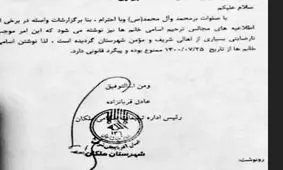 سلام علیکم
با صلوات برمحمد وآل محمد(ص) وبا احترام ، بنا برگزارشات واصله در برخی از
اطلاعیه های مجالس ترحیم اسامی خانم ها نیز نوشته می شود که این امر موجب
نارضایتی بسیاری از اهالی شریف و مؤمن شهرستان گردیده است ، لذا نوشتن اسامی
خانم ها از تاریخ ۱۴۰۰/۰۷/۲۵ ممنوع بوده و پیگرد قانونی دارد.
ومن الله التوفیق
عادل قربانزاده
رئیس اداره ملکان
شهرستان ملکان
رونوشت: